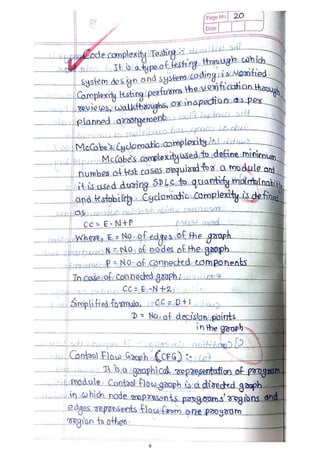 Page No. 20
Date
Code complexity Testing :-
It is a type of testing through which
system design and system coding is verified
Complexity testing performs the verification through
reviews, walkthroughs, or inspection as per
planned arrangement.
McCabe's Cyclomatic complexity :-
McCabe's complexity used to define minimum
number of test cases required for a module and
it is used during SDLC to quantify maintainability
and testability. Cyclomatic Complexity is defined
as
CC = E - N + P
Where, E = No. of edges of the graph
N = No. of nodes of the graph
P = No. of connected components
In case of connected graph,
CC = E - N + 2
Simplified formula, CC = D + 1
D = No. of decision points
in the graph
Control Flow Graph (CFG) :-
It is a graphical representation of program
module. Control flow graph is a directed graph
in which node represents programs' regions and
edges represents flow from one program
region to other.
9